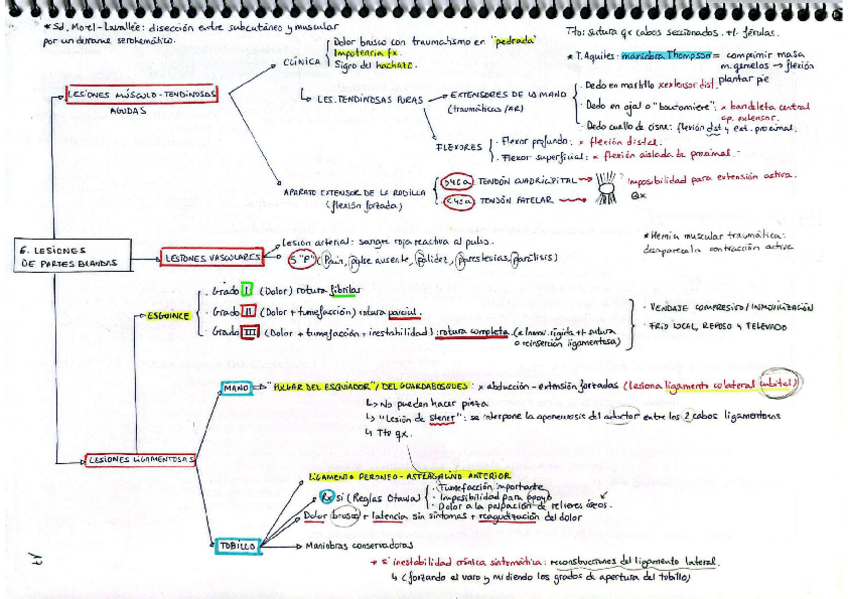 * Sd. Morel-Lavallée: disección entre subcutáneo y muscular
por un derrame serohemático.
Tto: sutura qx cabos seccionados. +/- férulas.
CLÍNICA
Dolor brusco con traumatismo en "pedrada"
Impotencia fx.
Signo del hachazo.
* T. Aquiles: maniobra Thompson = comprimir masa
m. gemelos → flexión
plantar pie
LESIONES MÚSCULO-TENDINOSAS
AGUDAS
LES. TENDINOSAS PURAS
EXTENSORES DE LA MANO
(traumáticas/AR)
Dedo en martillo x extensor dist.
Dedo en ojal o "boutonniere": x bandeleta central
ap. extensor.
Dedo cuello de cisne: flexión dst y ext. proximal.
FLEXORES
Flexor profundo: x flexión distal.
Flexor superficial: x flexión aislada de proximal.
APARATO EXTENSOR DE LA RODILLA
(flexión forzada)
>40a TENDÓN CUADRICIPITAL
<40a TENDÓN PATELAR
Imposibilidad para extensión activa.
Qx.
6. LESIONES
DE PARTES BLANDAS
LESIONES VASCULARES
Lesión arterial: sangre roja reactiva al pulso.
5 "P" (Pain, pulso ausente, palidez, parestesias, parálisis)
* Hernia muscular traumática:
desaparece la contracción activa
ESGUINCE
Grado I (Dolor) rotura fibrilar
Grado II (Dolor + tumefacción) rotura parcial.
Grado III (Dolor + tumefacción + inestabilidad): rotura completa. (x Inmov. rígida +/- sutura
o reinserción ligamentosa)
- VENDAJE COMPRESIVO/INMOVILIZACIÓN
- FRÍO LOCAL, REPOSO Y ELEVADO
MANO
"PULGAR DEL ESQUIADOR"/DEL GUARDABOSQUES: x abducción-extensión forzadas (lesiona ligamento colateral cubital)
↳ No pueden hacer pinza
↳ "Lesión de Stener": se interpone la aponeurosis del aductor entre los 2 cabos ligamentosos
↳ Tto qx.
LESIONES LIGAMENTOSAS
LIGAMENTO PERONEO-ASTRAGALINO ANTERIOR
Rx si (Reglas Otawa)
Tumefacción importante
Imposibilidad para apoyo
Dolor a la palpación de relieves óseos.
Dolor brusco + latencia sin síntomas + reagudización del dolor
TOBILLO
Maniobras conservadoras
* Si inestabilidad crónica sintomática: reconstrucciones del ligamento lateral.
↳ (forzando el varo y midiendo los grados de apertura del tobillo)
17